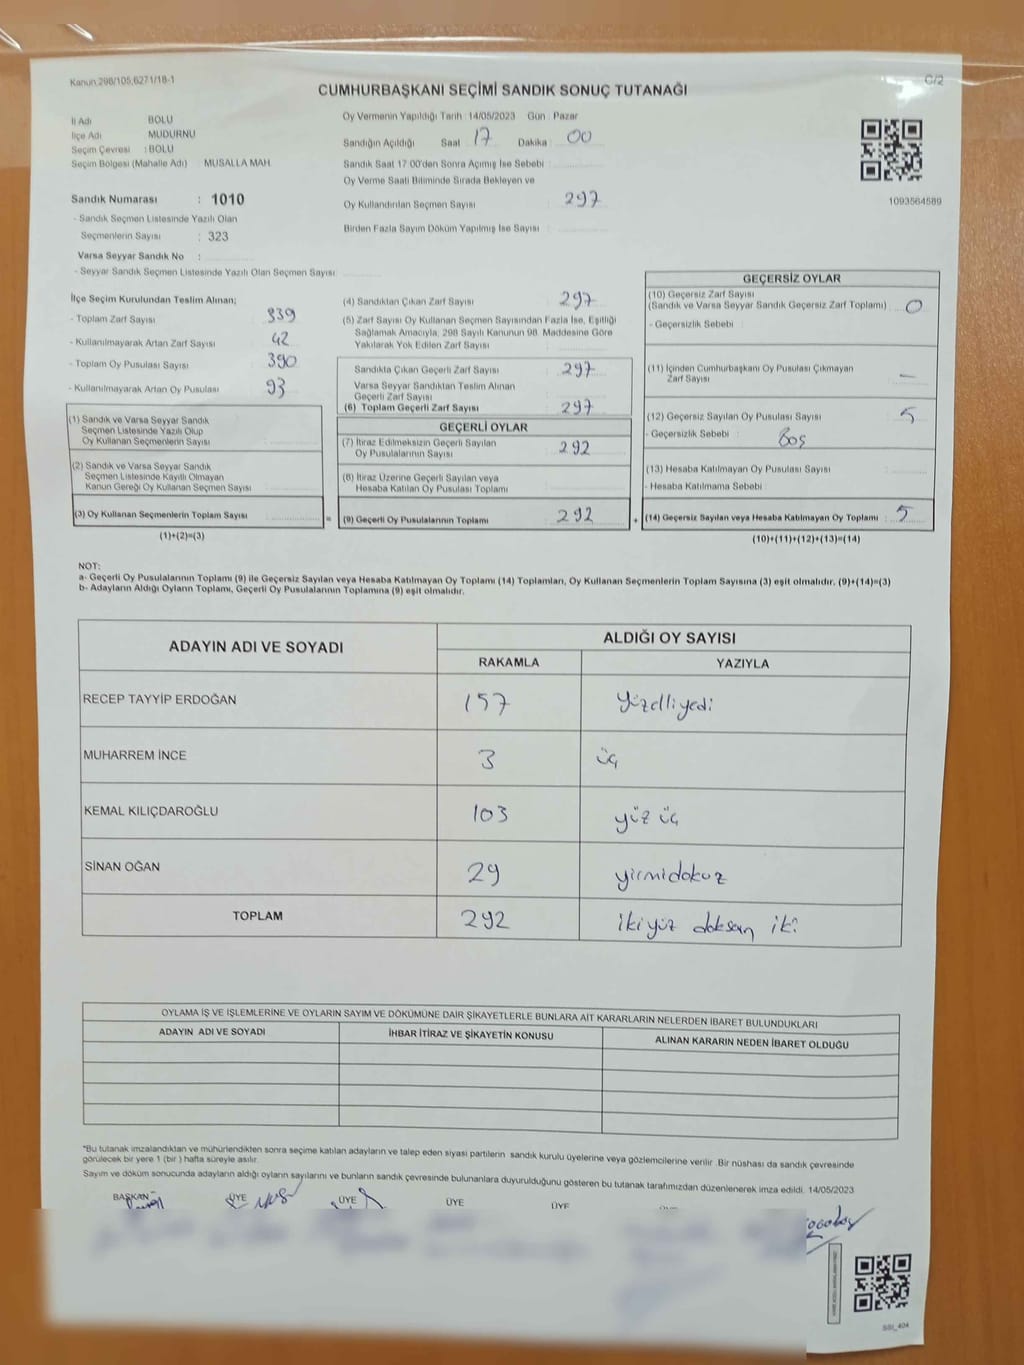 Kanun 298/105,6271/18-1
C/2
CUMHURBAŞKANI SEÇİMİ SANDIK SONUÇ TUTANAĞI
İl Adı BOLU
İlçe Adı MUDURNU
Seçim Çevresi : BOLU
Seçim Bölgesi (Mahalle Adı) : MUSALLA MAH.
Sandık Numarası : 1010
- Sandık Seçmen Listesinde Yazılı Olan
Seçmenlerin Sayısı : 323
Varsa Seyyar Sandık No :
- Seyyar Sandık Seçmen Listesinde Yazılı Olan Seçmen Sayısı
Oy Vermenin Yapıldığı Tarih : 14/05/2023 Gün : Pazar
Sandığın Açıldığı Saat 17 Dakika 00
Sandık Saat 17 00'den Sonra Açımış İse Sebebi
Oy Verme Saati Bitiminde Sırada Bekleyen ve
Oy Kullandırılan Seçmen Sayısı : 297
Birden Fazla Sayım Döküm Yapılmış İse Sayısı :
1093564589
İlçe Seçim Kurulundan Teslim Alınan;
- Toplam Zarf Sayısı 339
- Kullanılmayarak Artan Zarf Sayısı 42
- Toplam Oy Pusulası Sayısı 390
- Kullanılmayarak Artan Oy Pusulası 93
(1) Sandık ve Varsa Seyyar Sandık
Seçmen Listesinde Yazılı Olup
Oy Kullanan Seçmenlerin Sayısı
(2) Sandık ve Varsa Seyyar Sandık
Seçmen Listesinde Kayıtlı Olmayan
Kanun Gereği Oy Kullanan Seçmen Sayısı
(3) Oy Kullanan Seçmenlerin Toplam Sayısı =
(1)+(2)=(3)
(4) Sandıktan Çıkan Zarf Sayısı 297
(5) Zarf Sayısı Oy Kullanan Seçmen Sayısından Fazla İse, Eşitliği
Sağlamak Amacıyla, 298 Sayılı Kanunun 98. Maddesine Göre
Yakılarak Yok Edilen Zarf Sayısı
Sandıkta Çıkan Geçerli Zarf Sayısı : 297
Varsa Seyyar Sandıktan Teslim Alınan
Geçerli Zarf Sayısı
(6) Toplam Geçerli Zarf Sayısı : 297
GEÇERLİ OYLAR
(7) İtiraz Edilmeksizin Geçerli Sayılan
Oy Pusulalarının Sayısı : 292
(8) İtiraz Üzerine Geçerli Sayılan veya
Hesaba Katılan Oy Pusulası Toplamı
(9) Geçerli Oy Pusulalarının Toplamı : 292 +
GEÇERSİZ OYLAR
(10) Geçersiz Zarf Sayısı
(Sandık ve Varsa Seyyar Sandık Geçersiz Zarf Toplamı) 0
- Geçersizlik Sebebi :
(11) İçinden Cumhurbaşkanı Oy Pusulası Çıkmayan
Zarf Sayısı —
(12) Geçersiz Sayılan Oy Pusulası Sayısı : 5
- Geçersizlik Sebebi : Boş
(13) Hesaba Katılmayan Oy Pusulası Sayısı
- Hesaba Katılmama Sebebi
(14) Geçersiz Sayılan veya Hesaba Katılmayan Oy Toplamı : 5
(10)+(11)+(12)+(13)=(14)
NOT:
a- Geçerli Oy Pusulalarının Toplamı (9) ile Geçersiz Sayılan veya Hesaba Katılmayan Oy Toplamı (14) Toplamları, Oy Kullanan Seçmenlerin Toplam Sayısına (3) eşit olmalıdır. (9)+(14)=(3)
b- Adayların Aldığı Oyların Toplamı, Geçerli Oy Pusulalarının Toplamına (9) eşit olmalıdır.
ADAYIN ADI VE SOYADI ALDIĞI OY SAYISI
RAKAMLA YAZIYLA
RECEP TAYYİP ERDOĞAN 157 yüzelliyedi
MUHARREM İNCE 3 üç
KEMAL KILIÇDAROĞLU 103 yüz üç
SİNAN OĞAN 29 yirmidokuz
TOPLAM 292 ikiyüz doksan iki
OYLAMA İŞ VE İŞLEMLERİNE VE OYLARIN SAYIM VE DÖKÜMÜNE DAİR ŞİKAYETLERLE BUNLARA AİT KARARLARIN NELERDEN İBARET BULUNDUKLARI
ADAYIN ADI VE SOYADI İHBAR İTİRAZ VE ŞİKAYETİN KONUSU ALINAN KARARIN NEDEN İBARET OLDUĞU
*Bu tutanak imzalandıktan ve mühürlendikten sonra seçime katılan adayların ve talep eden siyasi partilerin sandık kurulu üyelerine veya gözlemcilerine verilir. Bir nüshası da sandık çevresinde
görülecek bir yere 1 (bir) hafta süreyle asılır.
Sayım ve döküm sonucunda adayların aldığı oyların sayılarını ve bunların sandık çevresinde bulunanlara duyurulduğunu gösteren bu tutanak tarafımızdan düzenlenerek imza edildi. 14/05/2023
BAŞKAN ÜYE ÜYE ÜYE ÜYE
SSI_404